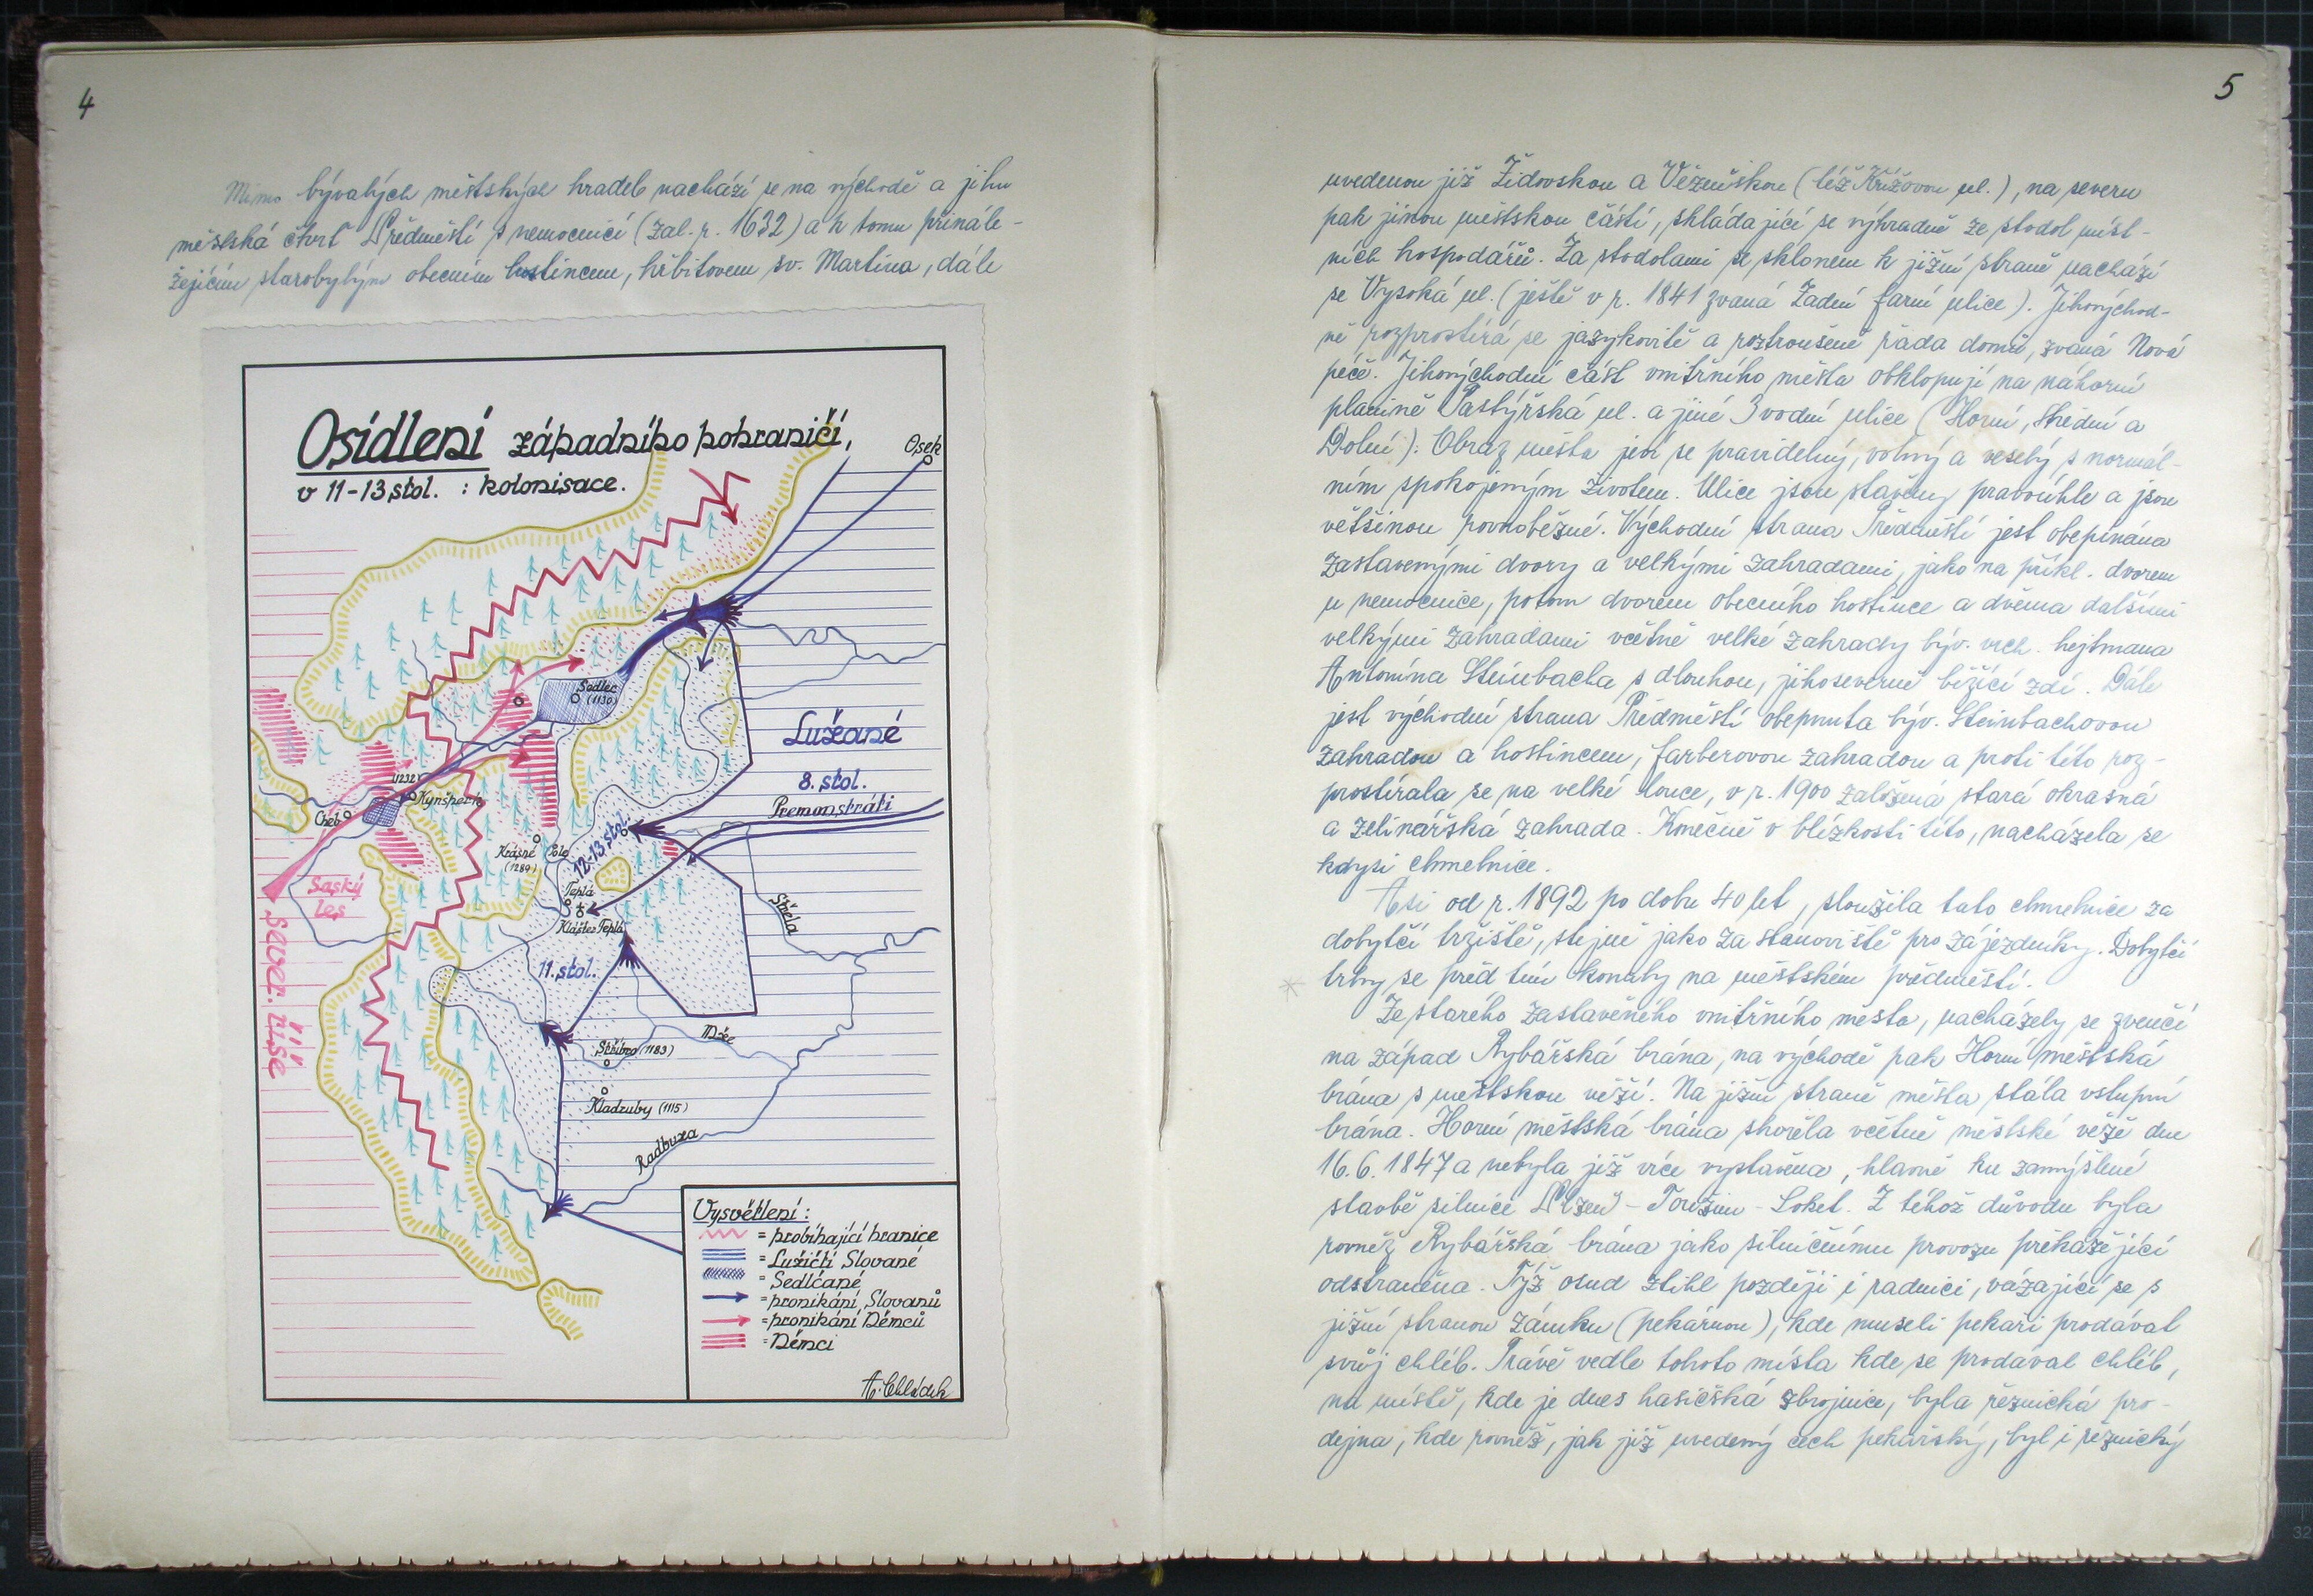 4
Mimo bývalých městských hradeb nachází se na východě a jihu
městská čtvrť Předměstí s nemocnicí (zal. r. 1632) a k tomu přinále-
žejícím starobylým obecním hostincem, hřbitovem sv. Martina, dále
Osídlení západního pohraničí,
v 11-13 stol. : kolonisace.
Osek
Sedlec
(1130)
Lužané
8. stol.
Premonstráti
1232
Kynšperk
Cheb
Krásné Pole
(1289)
12-13. stol.
Saský
les
Teplá
Klášter Teplá
Střela
11. stol.
Sever. říše
Mže
Stříbro (1183)
Kladruby (1115)
Radbuza
Vysvětlení :
= probíhající hranice
= Lužičtí Slované
= Sedlčané
= pronikání Slovanů
= pronikání Němců
= Němci
A. Chládek
5
uvedenou již Židovskou a Vězeňskou (též Křížovou ul.), na severu
pak jinou městskou částí, skládající se výhradně ze stodol míst-
ních hospodářů. Za stodolami se sklonem k jižní straně nachází
se Vysoká ul. (ještě v r. 1841 zvaná Zadní farní ulice). Jihovýchod-
ně rozprostírá se jazykovitě a roztroušeně řada domů, zvaná Nová
péče. Jihovýchodní část vnitřního města obklopují na náhorní
planině Pastýřská ul. a jiné 3 vodní ulice (Horní, Střední a
Dolní). Obraz města jeví se pravidelný, volný a veselý s normál-
ním spokojeným životem. Ulice jsou stavěny pravoúhle a jsou
většinou rovnoběžné. Východní strana Předměstí jest obepínána
zastavenými dvory a velkými zahradami, jako na příkl. dvorem
u nemocnice, potom dvorem obecního hostince a dvěma dalšími
velkými zahradami včetně velké zahrady býv. vrch. hejtmana
Antonína Steinbacha s dlouhou, jihoseverně běžící zdí. Dále
jest východní strana Předměstí obepnuta býv. Steinbachovou
zahradou a hostincem, farberovou zahradou a proti této roz-
prostírala se na velké louce, v r. 1900 založená stará okrasná
a zelinářská zahrada. Konečně v blízkosti této, nacházela se
kdysi chmelnice.
Asi od r. 1892 po dobu 40 let, sloužila tato chmelnice za
dobytčí tržiště, stejně jako za stanoviště pro zájezdníky. Dobytčí
trhy se před tím konaly na městském předměstí.
Ze starého zastavěného vnitřního města, nacházely se zvenčí
na západ Rybářská brána, na východě pak Horní městská
brána s městskou věží. Na jižní straně města stála vstupní
brána. Horní městská brána shořela včetně městské věže dne
16.6.1847 a nebyla již více vystavěna, hlavně ku zamýšlené
stavbě silnice Plzeň - Toužim - Loket. Z téhož důvodu byla
rovněž Rybářská brána jako silničnímu provozu překážející
odstraněna. Týž osud stihl později i radnici, vázající se s
jižní stranou zámku (pekárnou), kde museli pekaři prodávat
svůj chléb. Právě vedle tohoto místa kde se prodával chléb,
na místě, kde je dnes hasičská zbrojnice, byla řeznická pro-
dejna, kde rovněž, jak již uvedený cech pekařský, byl i řeznický